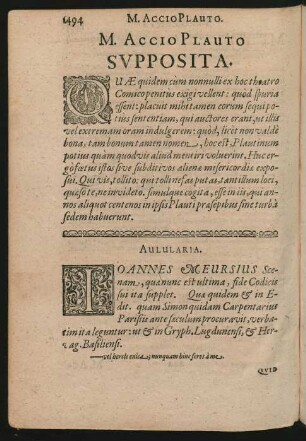 494 M. ACCIO PLAUTO.
M. ACCIO PLAUTO
SVPPOSITA.
QUÆ quidem cùm nonnulli ex hoc theatro
Comico penitus exigi vellent: quòd spuria
essent: placuit mihi tamen eorum sequi po-
tius sententiam, qui auctores erant, ut illis
vel extremam oram indulgerem: quòd, licèt non valdè
bona, tam bonum tamen nomen, hoc est, Plautinum
potius quàm quodvis aliud mentiri voluerint. Huc er-
gò fœtus istos sive subditivos alienæ misericordiæ expo-
sui. Qui vis, tollito: qui tolli nefas putas, tantillum loci,
quæso te, ne invideto. simulque cogita, esse in iis, qui an-
nos aliquot centenos in ipsis Plauti præsepibus sine turbâ
sedem habuerunt.
AULULARIA.
IOANNES MEURSIUS Sce-
nam, quæ nunc est ultima, fide Codicis
sui ita supplet. Quæ quidem & in E-
dit. quam Simon quidam Carpentarius
Parisiis ante sæculum procuravit, verba-
tim ita leguntur: ut & in Gryph. Lugdunensi, & Her-
vag. Basiliensi.
—vel hercle enica, nunquam hinc feres à me.
QVID